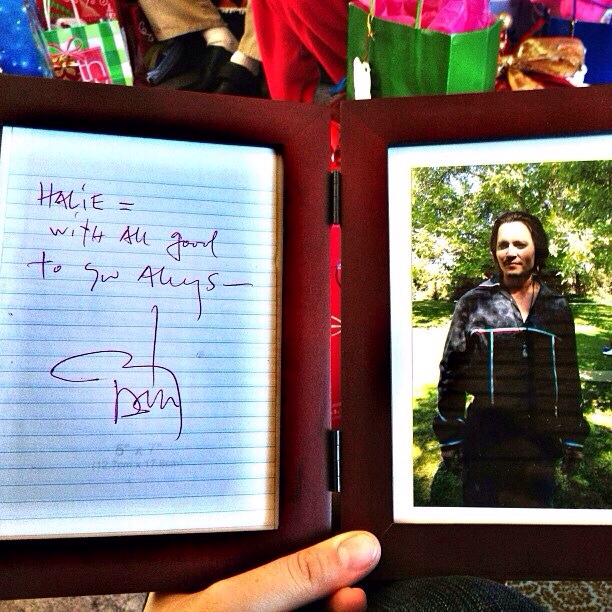 HALiE =
with All good
to you Always—
5" x 7"
(12.7cm x 17.8cm)